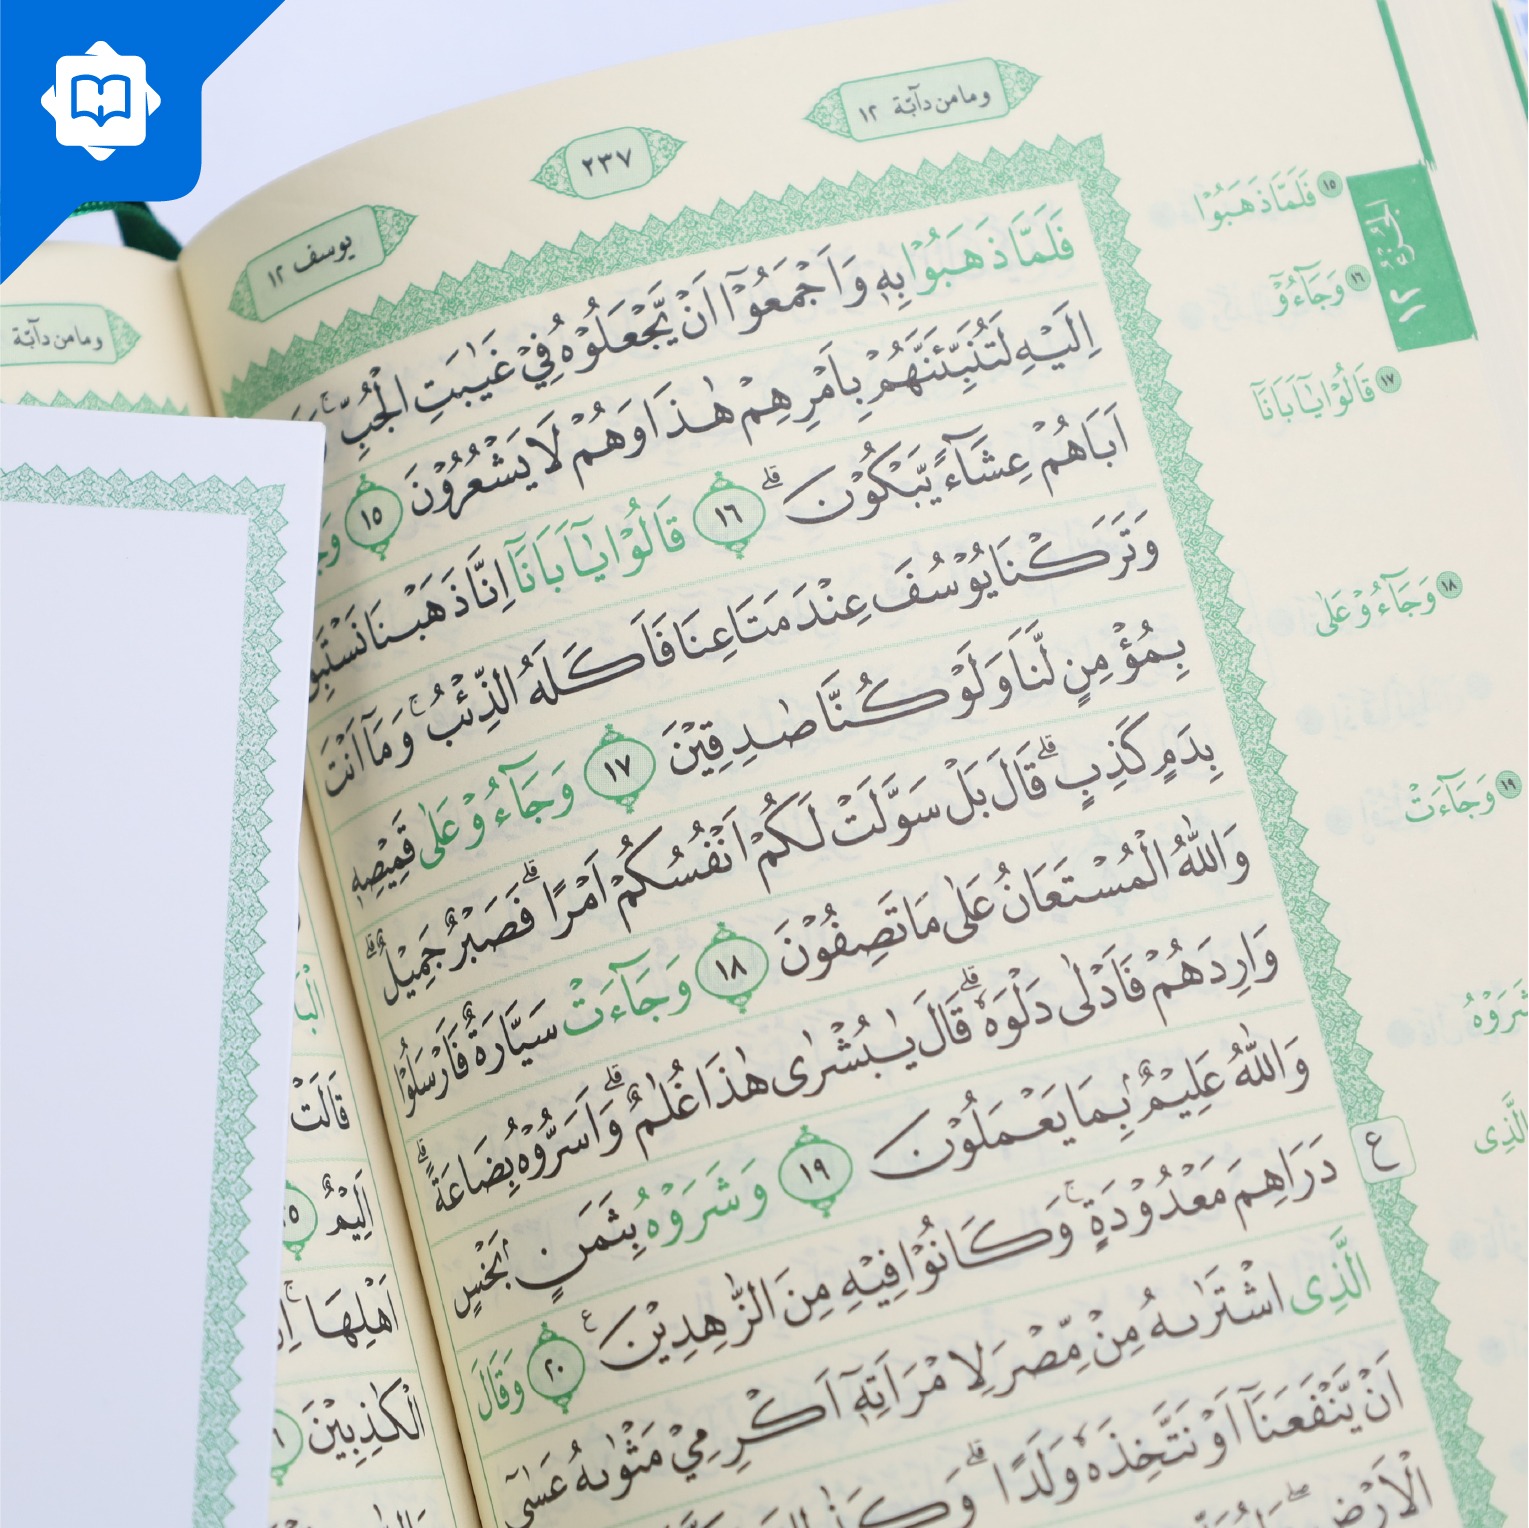 وما من دآبّة ١٢
٢٣٧
يوسف ١٢
فَلَمَّا ذَهَبُوْا بِهٖ وَاَجْمَعُوْٓا اَنْ يَّجْعَلُوْهُ فِيْ غَيٰبَتِ الْجُبِّۚ
اِلَيْهِ لَتُنَبِّئَنَّهُمْ بِاَمْرِهِمْ هٰذَا وَهُمْ لَا يَشْعُرُوْنَ ١٥
اَبَاهُمْ عِشَاۤءً يَّبْكُوْنَۗ ١٦ قَالُوْا يٰٓاَبَانَآ اِنَّا ذَهَبْنَا
وَتَرَكْنَا يُوْسُفَ عِنْدَ مَتَاعِنَا فَاَكَلَهُ الذِّئْبُۚ وَمَآ اَنْتَ
بِمُؤْمِنٍ لَّنَا وَلَوْ كُنَّا صٰدِقِيْنَ ١٧ وَجَاۤءُوْ عَلٰى قَمِيْصِهٖ
بِدَمٍ كَذِبٍۗ قَالَ بَلْ سَوَّلَتْ لَكُمْ اَنْفُسُكُمْ اَمْرًاۗ فَصَبْرٌ جَمِيْلٌۗ
وَاللّٰهُ الْمُسْتَعَانُ عَلٰى مَا تَصِفُوْنَ ١٨ وَجَاۤءَتْ سَيَّارَةٌ فَاَرْسَلُوْا
وَارِدَهُمْ فَاَدْلٰى دَلْوَهٗۗ قَالَ يٰبُشْرٰى هٰذَا غُلٰمٌۗ وَاَسَرُّوْهُ بِضَاعَةًۗ
وَاللّٰهُ عَلِيْمٌۢ بِمَا يَعْمَلُوْنَ ١٩ وَشَرَوْهُ بِثَمَنٍۢ بَخْسٍ
دَرَاهِمَ مَعْدُوْدَةٍۚ وَكَانُوْا فِيْهِ مِنَ الزّٰهِدِيْنَ ࣖ ٢٠ وَقَالَ
الَّذِى اشْتَرٰىهُ مِنْ مِّصْرَ لِامْرَاَتِهٖٓ اَكْرِمِيْ مَثْوٰىهُ عَسٰٓى
اَنْ يَّنْفَعَنَآ اَوْ نَتَّخِذَهٗ وَلَدًاۗ
الْاَرْضِۖ
ع
١٥ فَلَمَّا ذَهَبُوْا
١٦ وَجَاۤءُوْٓ
١٧ قَالُوْا يٰٓاَبَانَآ
١٨ وَجَاۤءُوْ عَلٰى
١٩ وَجَاۤءَتْ
وما من دآبّة
قَالَتْ
اَلِيْمٌ
اَهْلِهَاۚ
الْكٰذِبِيْنَ